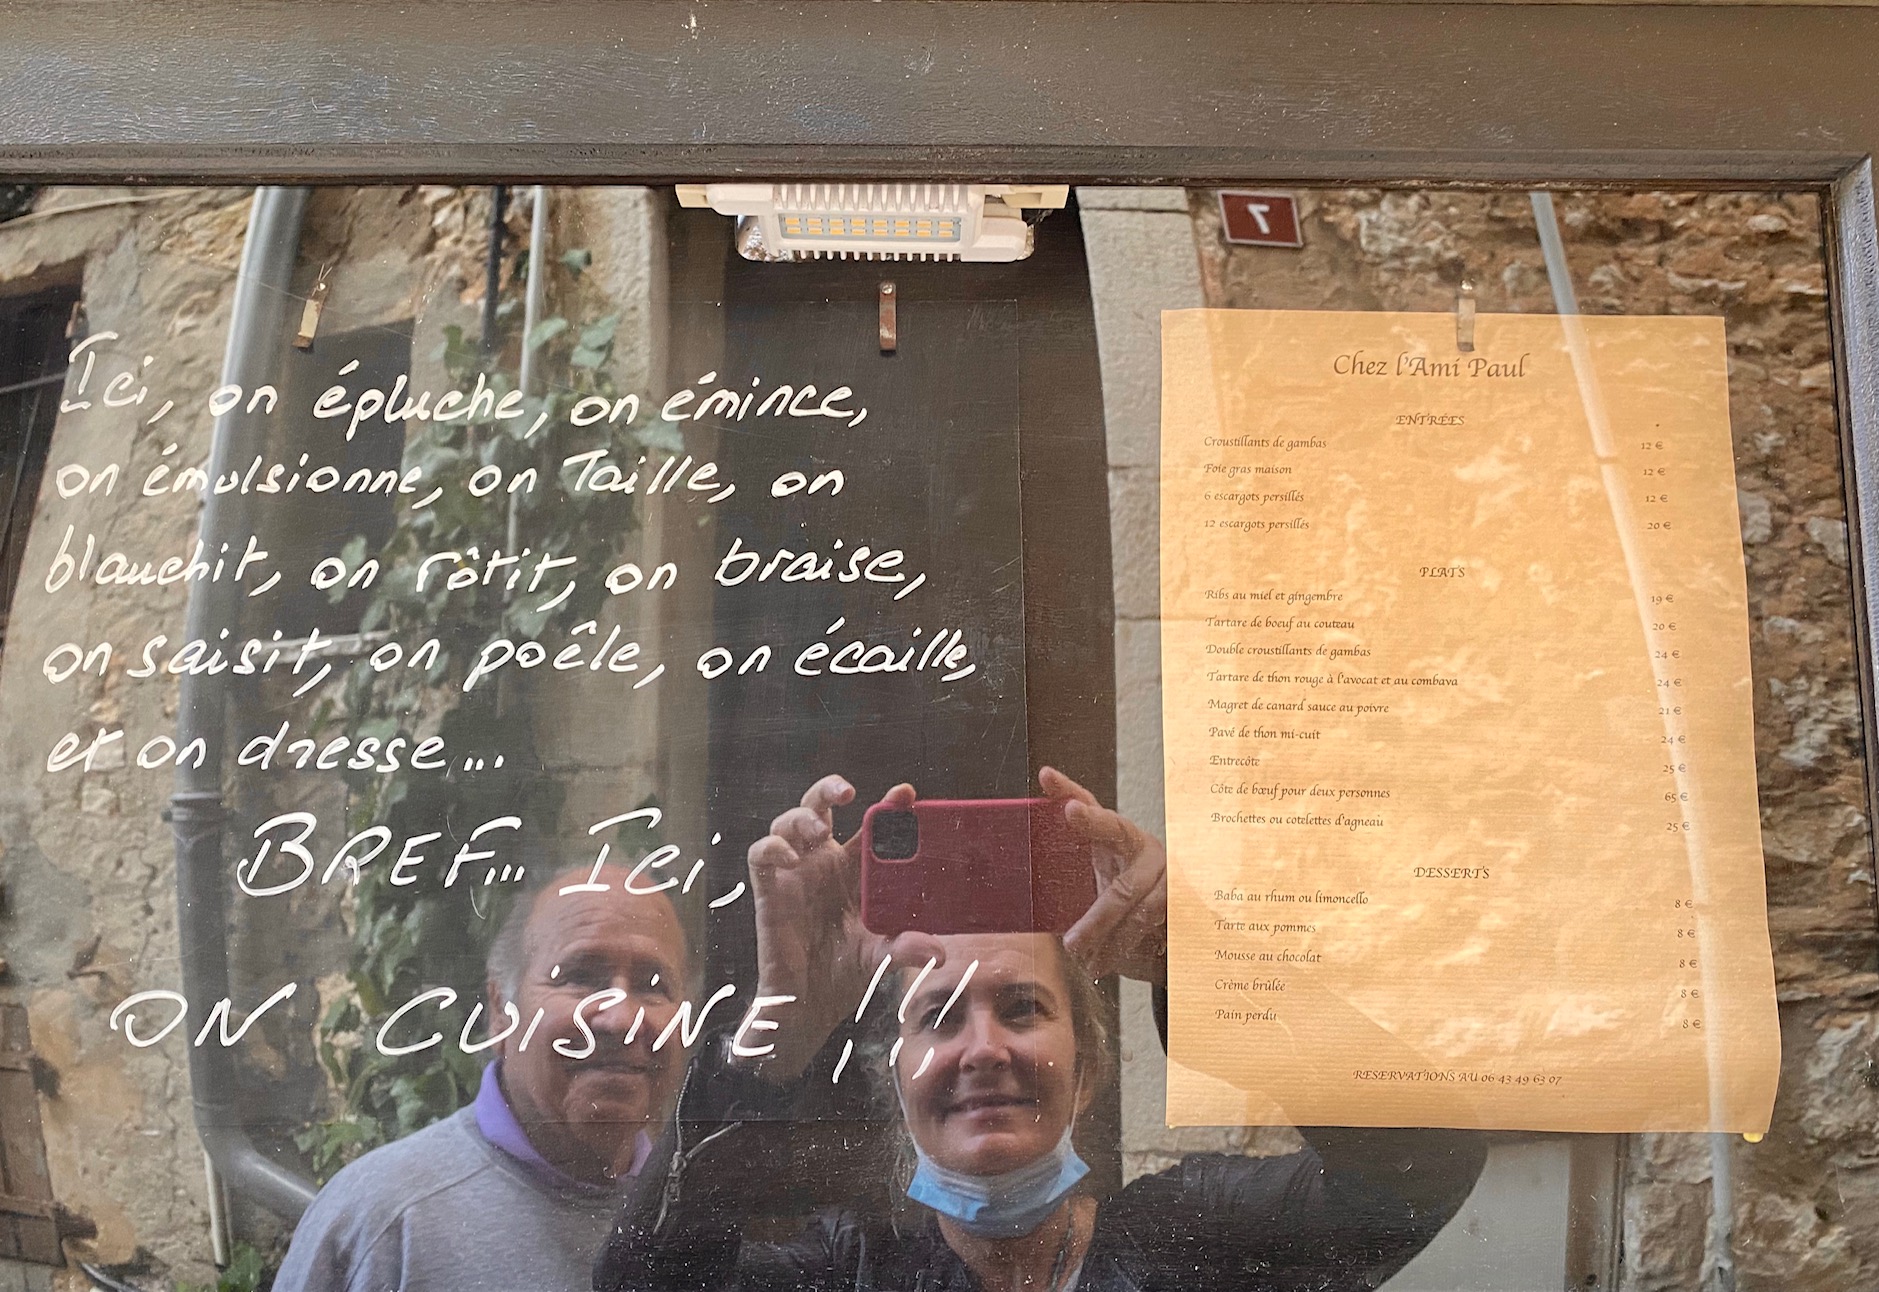 Ici, on épluche, on émince,
on émulsionne, on Taille, on
blanchit, on rôtit, on braise,
on saisit, on poêle, on écaille,
et on dresse...
BREF... Ici,
ON CUISINE !!!
7
Chez l'Ami Paul
ENTRÉES
Croustillants de gambas 12 €
Foie gras maison 12 €
6 escargots persillés 12 €
12 escargots persillés 20 €
PLATS
Ribs au miel et gingembre 19 €
Tartare de boeuf au couteau 20 €
Double croustillants de gambas 24 €
Tartare de thon rouge à l'avocat et au combava 24 €
Magret de canard sauce au poivre 21 €
Pavé de thon mi-cuit 24 €
Entrecôte 25 €
Côte de bœuf pour deux personnes 65 €
Brochettes ou cotelettes d'agneau 25 €
DESSERTS
Baba au rhum ou limoncello 8 €
Tarte aux pommes 8 €
Mousse au chocolat 8 €
Crème brûlée 8 €
Pain perdu 8 €
RESERVATIONS AU 06 43 49 63 07